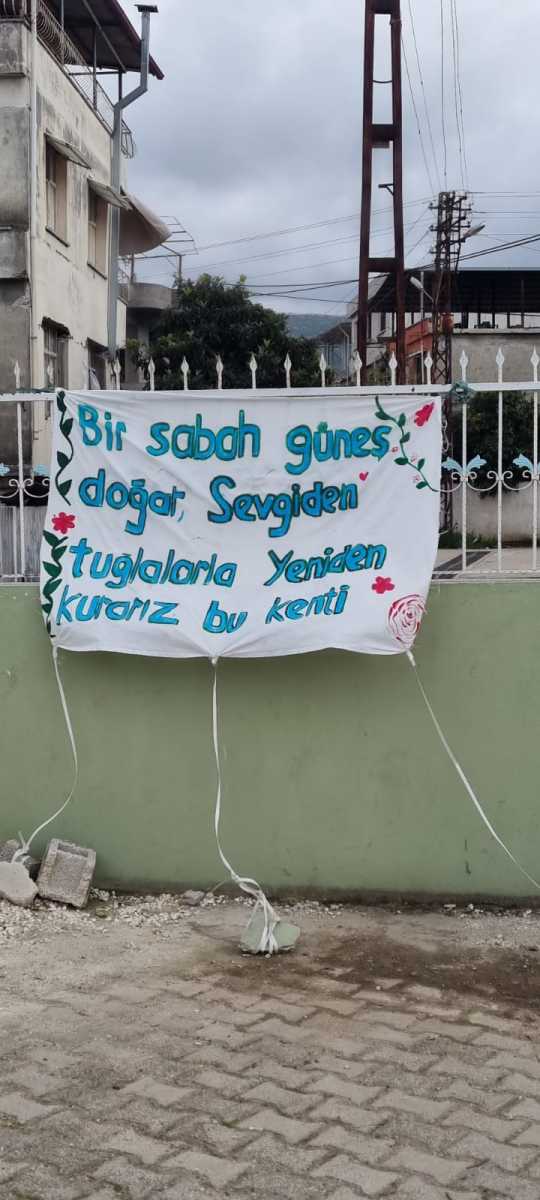 Bir sabah güneş
doğar, Sevgiden
tuğlalarla Yeniden
kurarız bu kenti